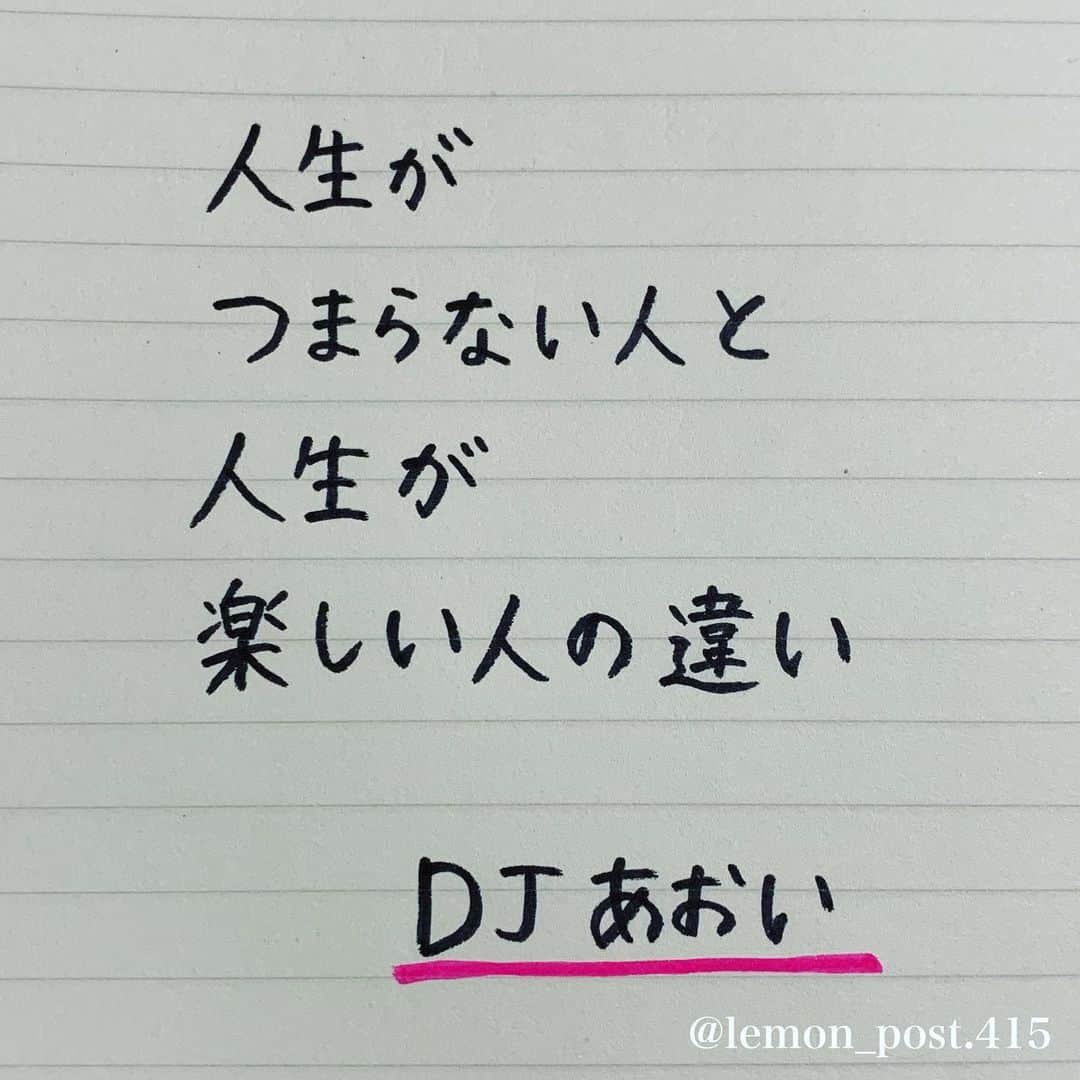 人生が
つまらない人と
人生が
楽しい人の違い
DJあおい
@lemon_post.415